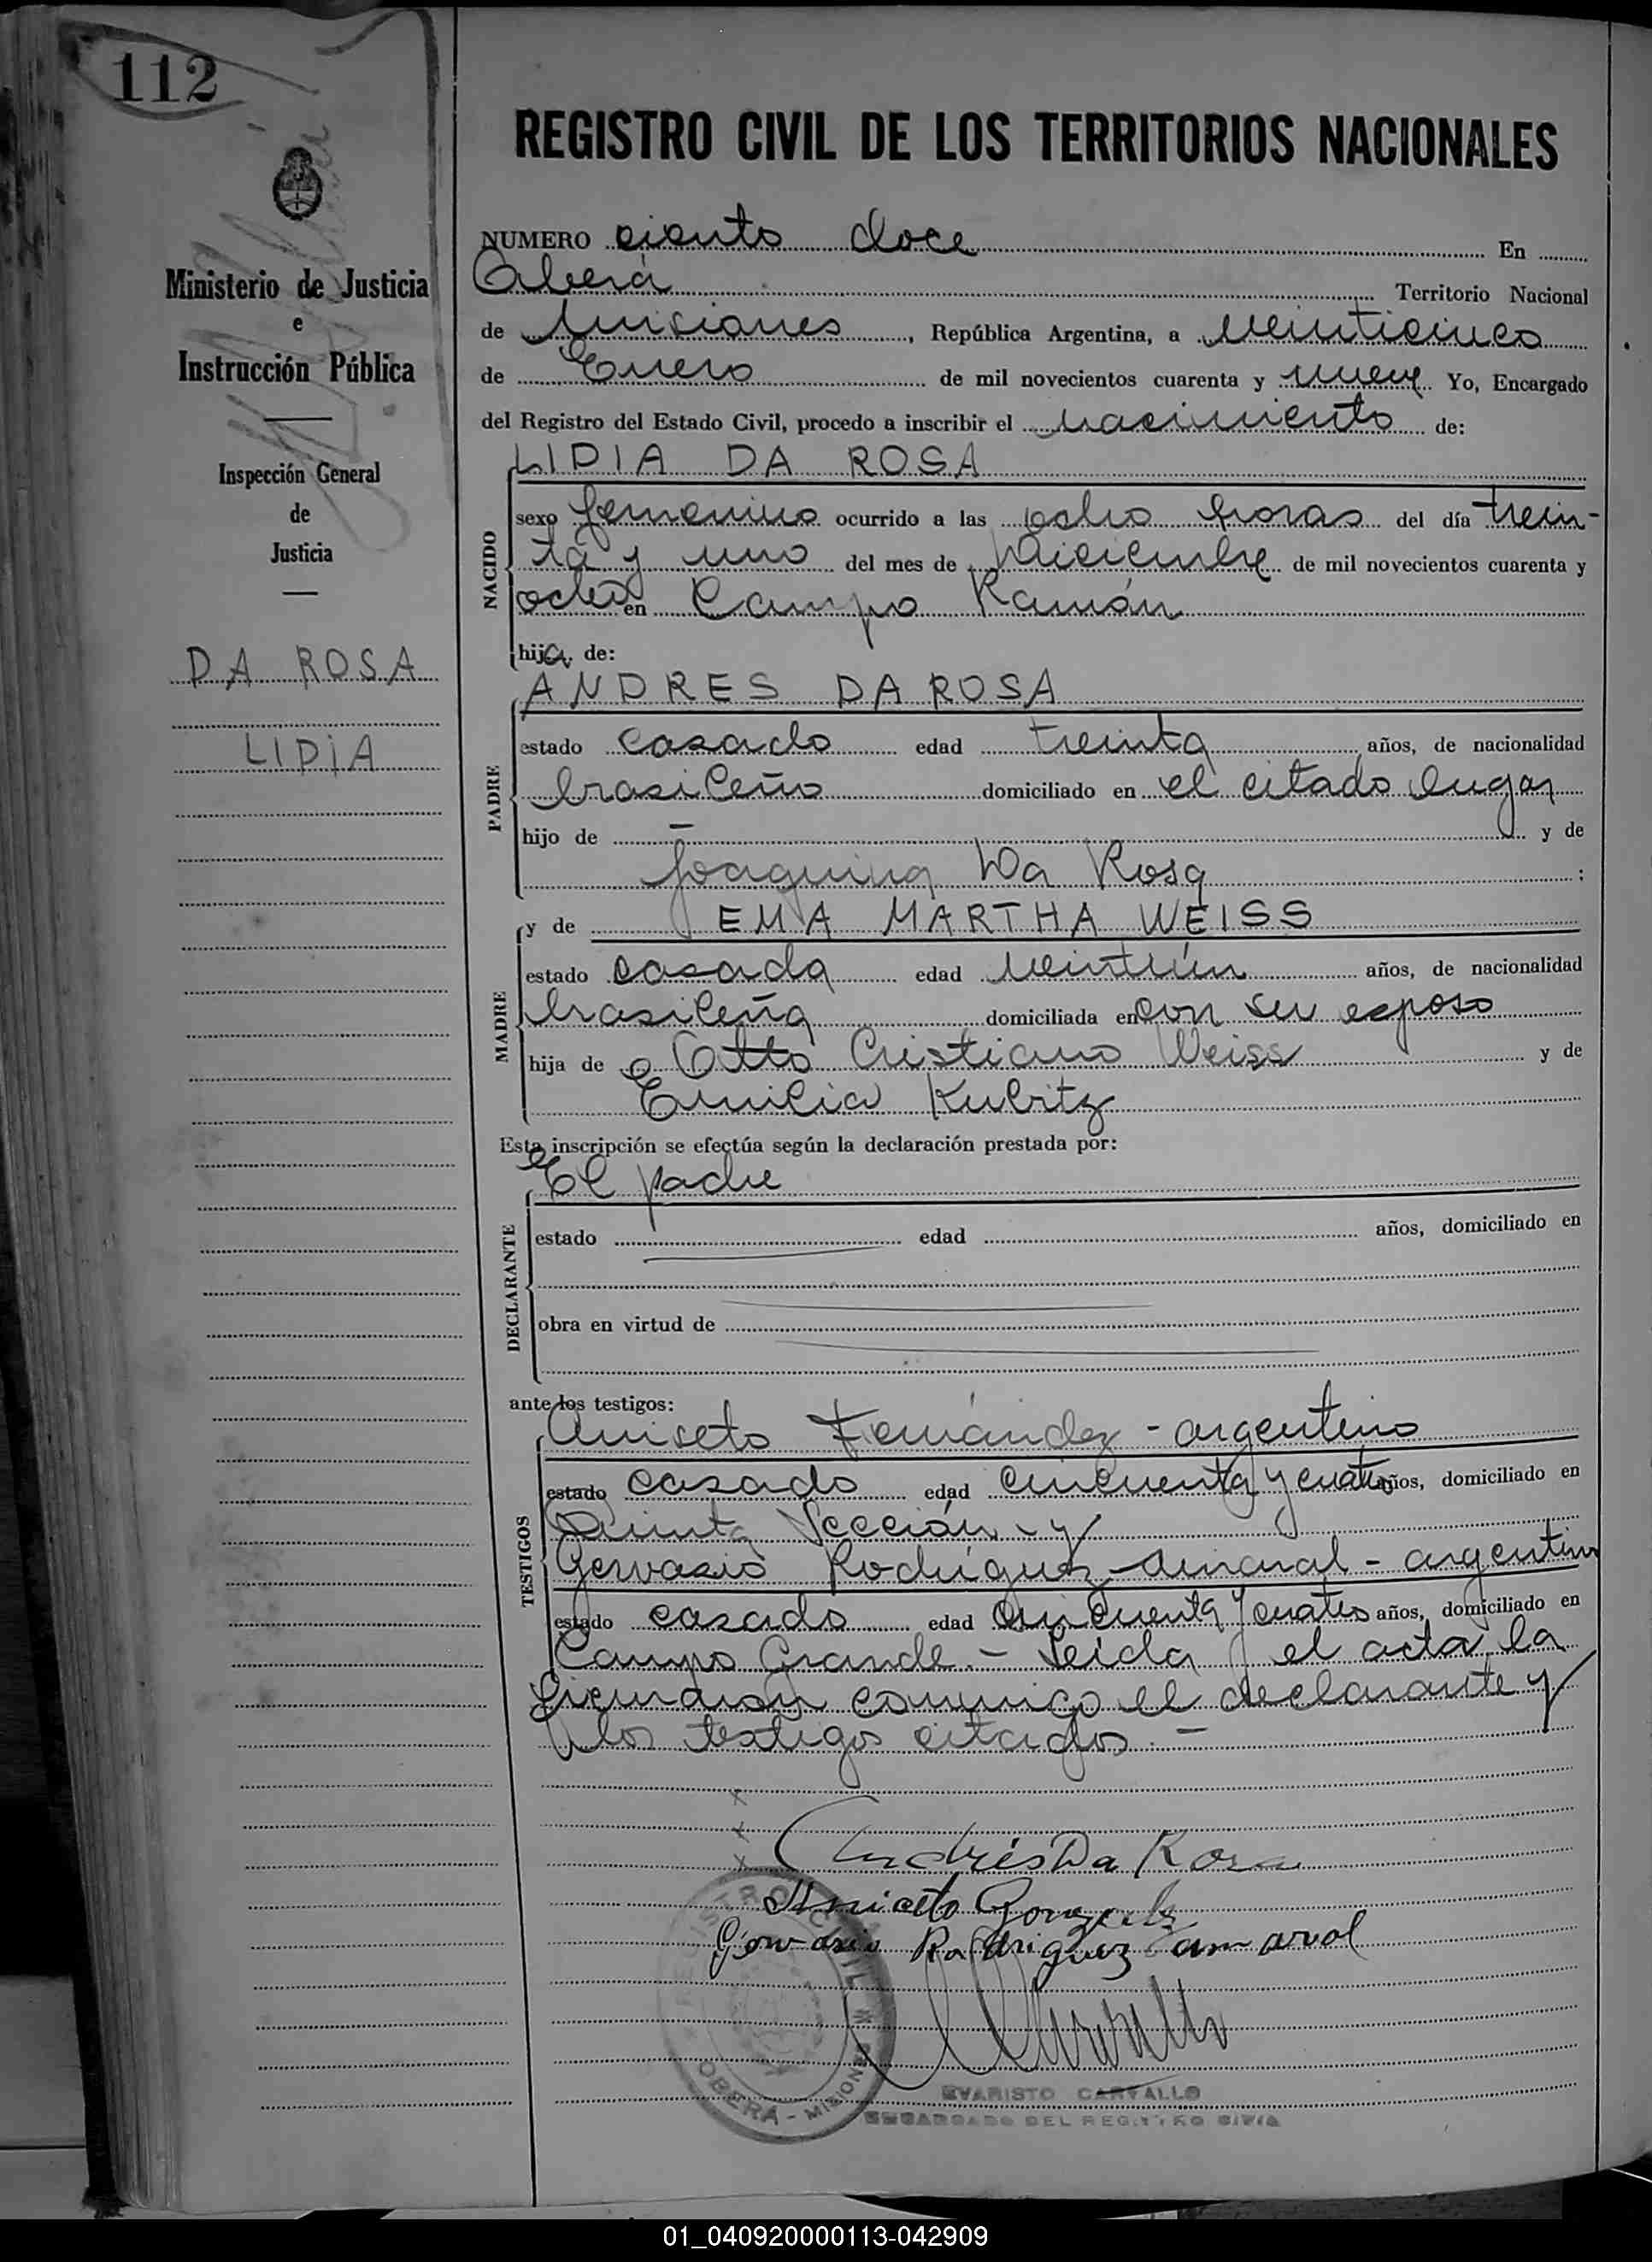 112
Ministerio de Justicia
e
Instrucción Pública
Inspección General
de
Justicia
DA ROSA
LIDIA
REGISTRO CIVIL DE LOS TERRITORIOS NACIONALES
NUMERO ciento doce En
Oberá Territorio Nacional
de Misiones, República Argentina, a veinticinco
de Enero de mil novecientos cuarenta y nueve Yo, Encargado
del Registro del Estado Civil, procedo a inscribir el nacimiento de:
NACIDO
LIDIA DA ROSA
sexo femenino ocurrido a las ocho horas del día trein-
ta y uno del mes de Diciembre de mil novecientos cuarenta y
ocho en Campo Ramón
hija de:
PADRE
ANDRES DA ROSA
estado casado edad treinta años, de nacionalidad
brasileño domiciliado en el citado lugar
hijo de — y de
Joaquina Da Rosa ;
MADRE
y de EMA MARTHA WEISS
estado casada edad veintiún años, de nacionalidad
brasileña domiciliada en con su esposo
hija de Otto Cristiano Weiss y de
Emilia Kubitz
Esta inscripción se efectúa según la declaración prestada por:
DECLARANTE
El padre
estado edad años, domiciliado en
obra en virtud de
ante los testigos:
TESTIGOS
Aniseto Fernández - argentino
estado casado edad cincuenta y cuatro años, domiciliado en
Quinta Sección - y
Gervasio Rodríguez Amaral - argentino
estado casado edad cincuenta y cuatro años, domiciliado en
Campo Grande. - Leída el acta, la
firmaron conmigo el declarante y
los testigos citados. -
Andrés Da Rosa
Aniceto Gonzalez
Gervasio Rodriguez amaral
REGISTRO CIVIL
OBERA - MISIONES
EVARISTO CARVALLO
ENCARGADO DEL REGISTRO CIVIL
01_040920000113-042909